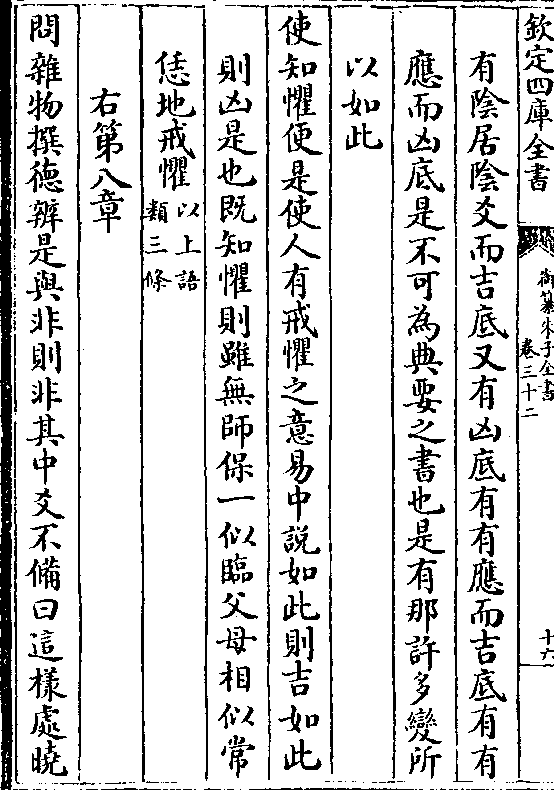 欽定四庫全書
御纂朱子全書
卷三十二
十六
有陰居陰爻而吉底又有凶底有有應而吉底有有
應而凶底是不可為典要之書也是有那許多變所
以如此
使知懼便是使人有戒懼之意易中說如此則吉如此
則凶是也既知懼則雖無師保一似臨父母相似常
恁地戒懼以上語類三條
右第八章
問雜物撰德辨是與非則非其中爻不備曰這樣處曉